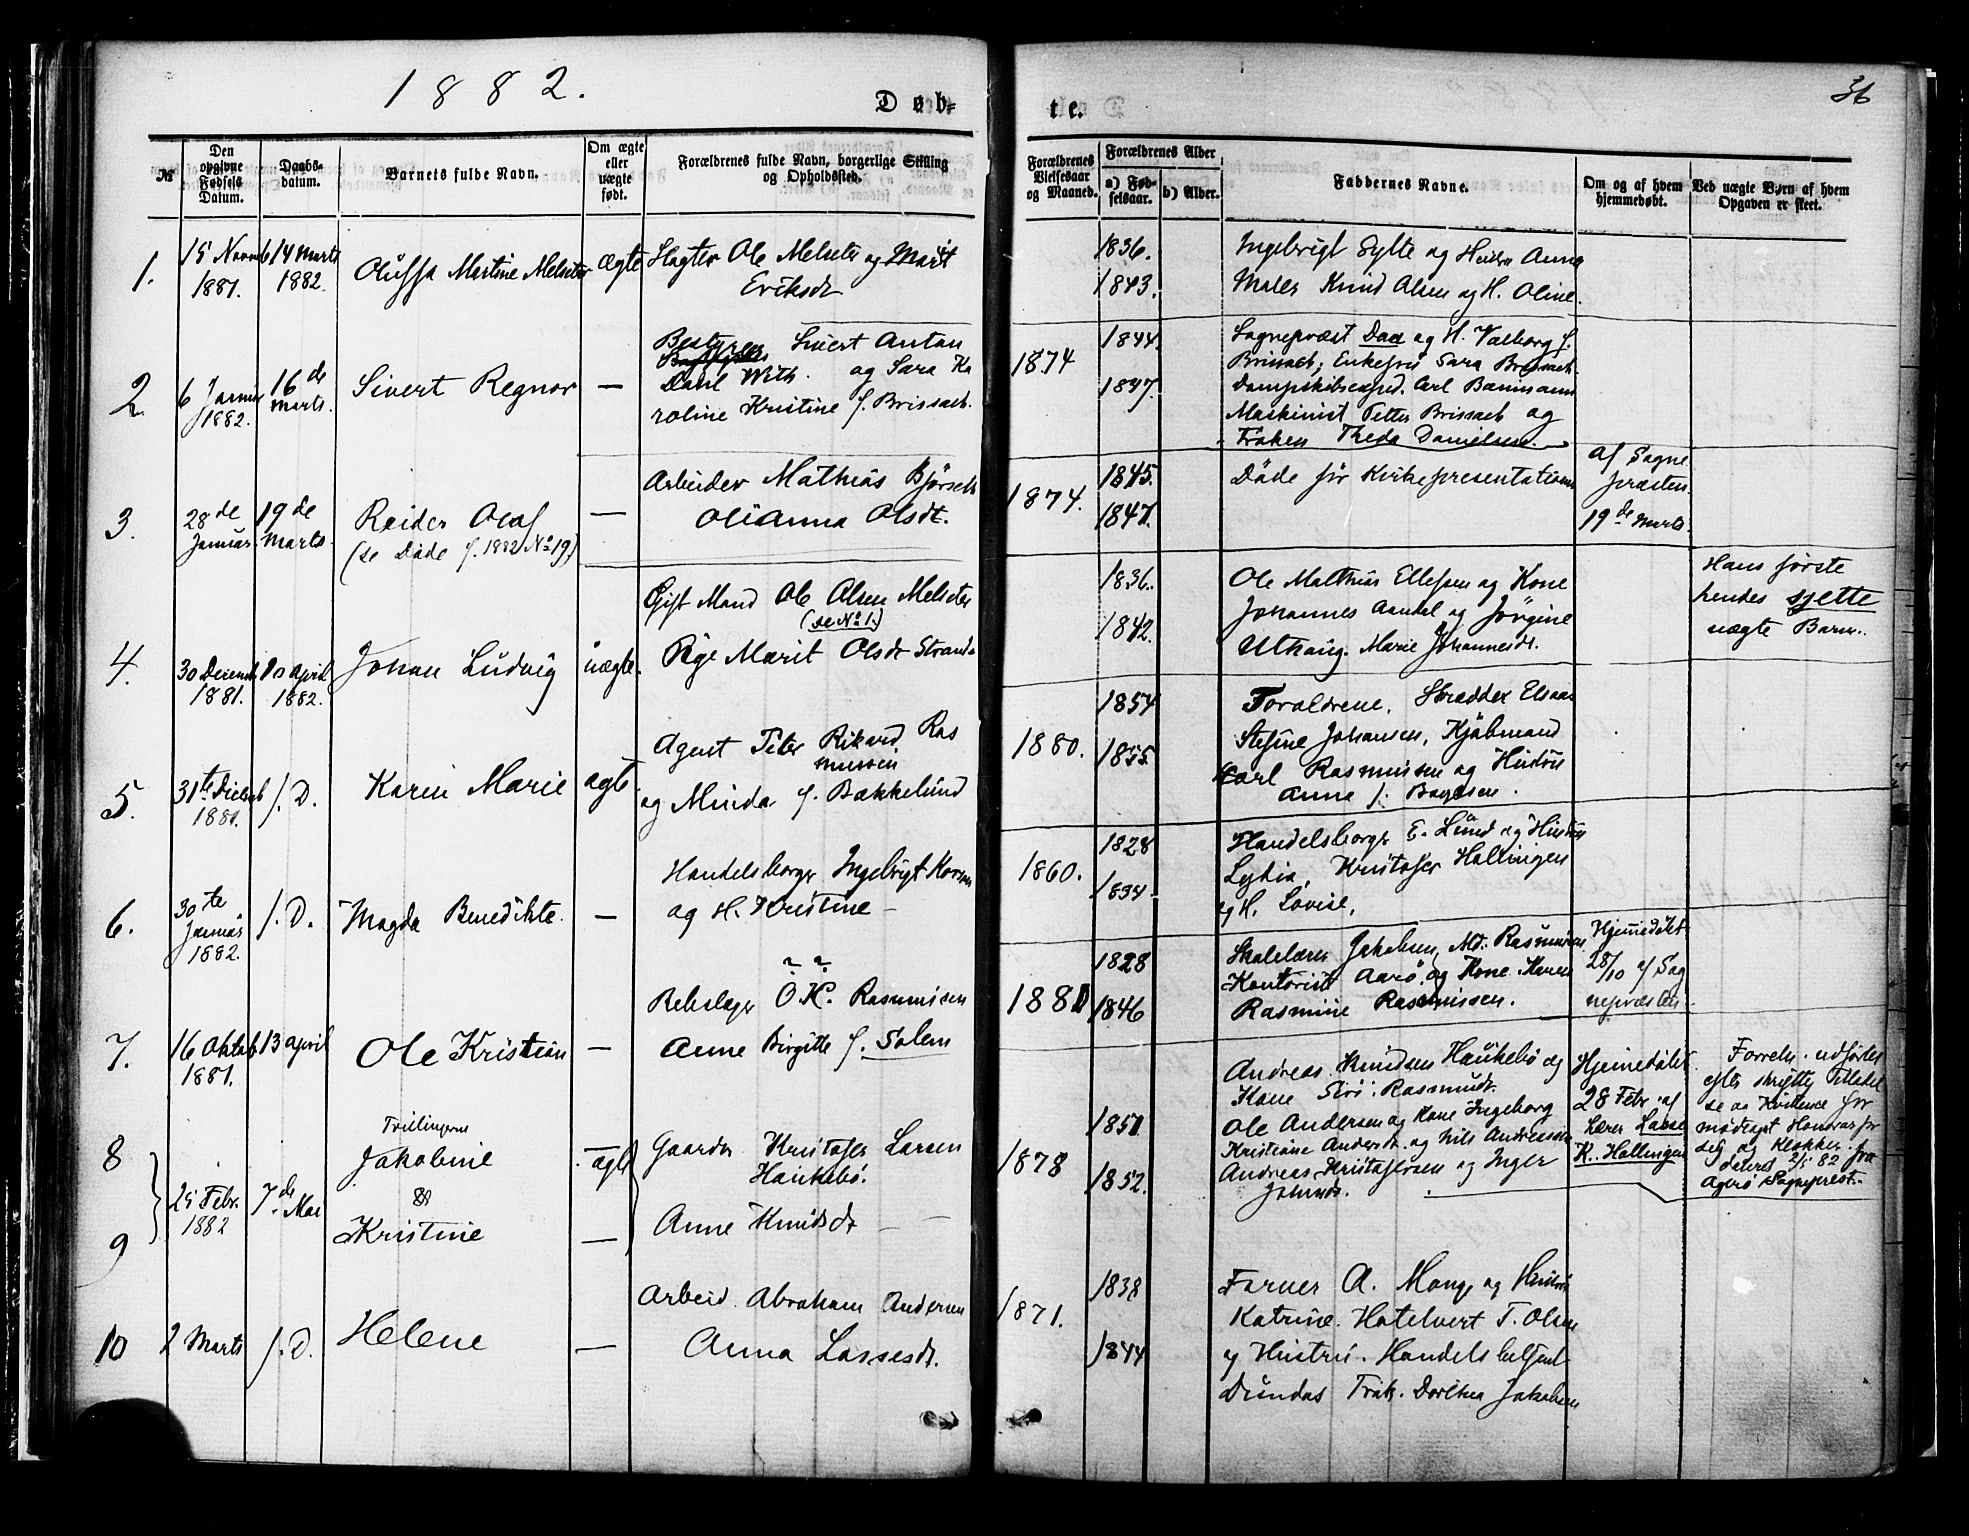 1882.
Døb-
te.
36
№
Den opgivne Fødsels Datum.
Daabs-datum.
Barnets fulde Navn.
Om ægte eller uægte født.
Forældrenes fulde Navn, borgerlige Stilling og Opholdssted.
Forældrenes Vielsesaar og Maaned.
Forældrenes Alder
a) Fød-selsaar.
b) Alder.
Faddernes Navne.
Om og af hvem hjemmedøbt.
Ved uægte Børn af hvem Opgaven er skeet.
1.
15 Novmb
1881.
14 Marts
1882.
Oluffa Martine Melseter
ægte
Ole Melseter og Marit
Eriksdt
1836.
1843.
Ingebrigt Sylte og Anna
Maler Knud Olsen og H. Oline.
2.
6 Januar
1882.
16de
Marts.
Sivert Regnor
—
Bestyrer Sivert Anton
Dahl With. og Sara Ka
roline Kristine f. Brissach.
1874
1844.
1847.
Sognepræst Daa og H. Valborg f.
Brissach; Enkefru Sara Brissach.
Dampskibsexped. Carl Baumann
Maskinist Petter Brissach og
Frøken Theda Danielsen.
3.
28de
Januar.
19de
Marts.
Reider Olaf
(se Døde f. 1882 No 19)
—
Arbeider Mathias Bjørseth
Olianna Olsdt.
1874.
1845.
1847.
Døde før Kirkepresentationen
af Sogne
præsten.
19de Marts.
4.
30 Decemb
1881.
10 April
1882.
Johan Ludvig
uægte.
Gift Mand Ole Olsen Melseter
(se No 1.)
Pige Marit Olsdt Strand
1836.
1842.
Ole Mathias Ellefsen og Kone
Johannes Aandal og Jørgine
Uthaug. Marie Johannesdt.
Hans første
hendes sjette
uægte Barn.
5.
31te Decemb
1881.
f. D.
Karen Marie
ægte
Agent Peter Rikard Ras
mussen
og Minda f. Bakkelund
1880.
1854
1855.
Forældrene, Skrædder
Stefine Johansen, Kjøbmand
Carl Rasmussen og Hustru
Anna f.
6.
30te
Januar
1882.
f. D.
Magda Benedikte.
—
Handelsborger Ingebrigt
og H. Kristine —
1860.
1828
1834.
Handelsborger E. Lund og Hustru
Lydia, Kristofer Hollingen
og H. Lovise.
7.
16 Oktob
1881.
13 April
Ole Kristian
—
Rebslager O. K. Rasmussen
Anne Birgitte f. Solem
1881
1828
1846
Skolelærer Jakobsen, Md. Rasmussen
Kontorist Aarø. og Kone. Karen
Rasmine Rasmussen.
Hjemmedøbt
28/10 af Sog
nepræsten.
8
9
25 Febr.
1882
7de Mai
Tvillingerne
Jakobine
&
Kristine
ægte
—
Gaardbr Kristofer Larsen
Haukebø.
Anne Knudsdt — —
1878
1851
1852.
Andreas Knudsen Haukebø og
Kone Siri Rasmusdt.
Ole Andersen og Kone Ingeborg
Kristiane Andersdt. og Nils Andreassen
Andreas Kristofersen og Inger
Johnsdt.
Hjemmedøbt
28 Febr. af
Lærer Lasse
K. Hollingen
Forretn. udførtes
efter skriftlig Tilladel
se og Kvittence for
modtaget Honorar for
sig og Klokker.
dateret 2/5 82 fra
Agerø Sognprest.
10
2 Marts
f. D.
Helene
—
Arbeid. Abraham Andersen
Anna Lassesdt.
1871.
1838
1844
Farver A. Monge og Hustru
Katrine. Hotelvert T. Olsen
og Hustru. Handelsbetjent
Dundas Frøk. Dorthea Jakobsen